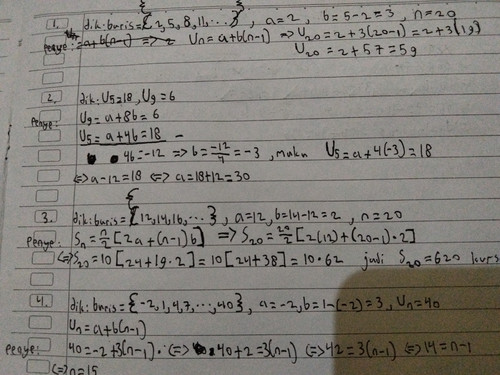 1. dik: baris = {2, 5, 8, 11, ...}, a = 2, b = 5-2 = 3, n = 20
Penye: Un = a+b(n-1) => 2 Un = a+b(n-1) => U20 = 2+3(20-1) = 2+3(19)
U20 = 2+57 = 59
2. dik: U5 = 18, U9 = 6
Penye: U9 = a+8b = 6
U5 = a+4b = 18 -
4b = -12 => b = -12/4 = -3, maka U5 = a+4(-3) = 18
<=> a-12 = 18 <=> a = 18+12 = 30
3. dik: baris = {12, 14, 16, ...}, a = 12, b = 14-12 = 2, n = 20
Penye: Sn = n/2 [2a + (n-1) b] => S20 = 20/2 [2(12) + (20-1)·2]
<=> S20 = 10[24+19·2] = 10[24+38] = 10·62 jadi S20 = 620 kursi
4. dik: baris = {-2, 1, 4, 7, ..., 40}, a = -2, b = 1-(-2) = 3, Un = 40
Un = a+b(n-1)
Penye: 40 = -2+3(n-1) <=> 40+2 = 3(n-1) <=> 42 = 3(n-1) <=> 14 = n-1
<=> n = 15